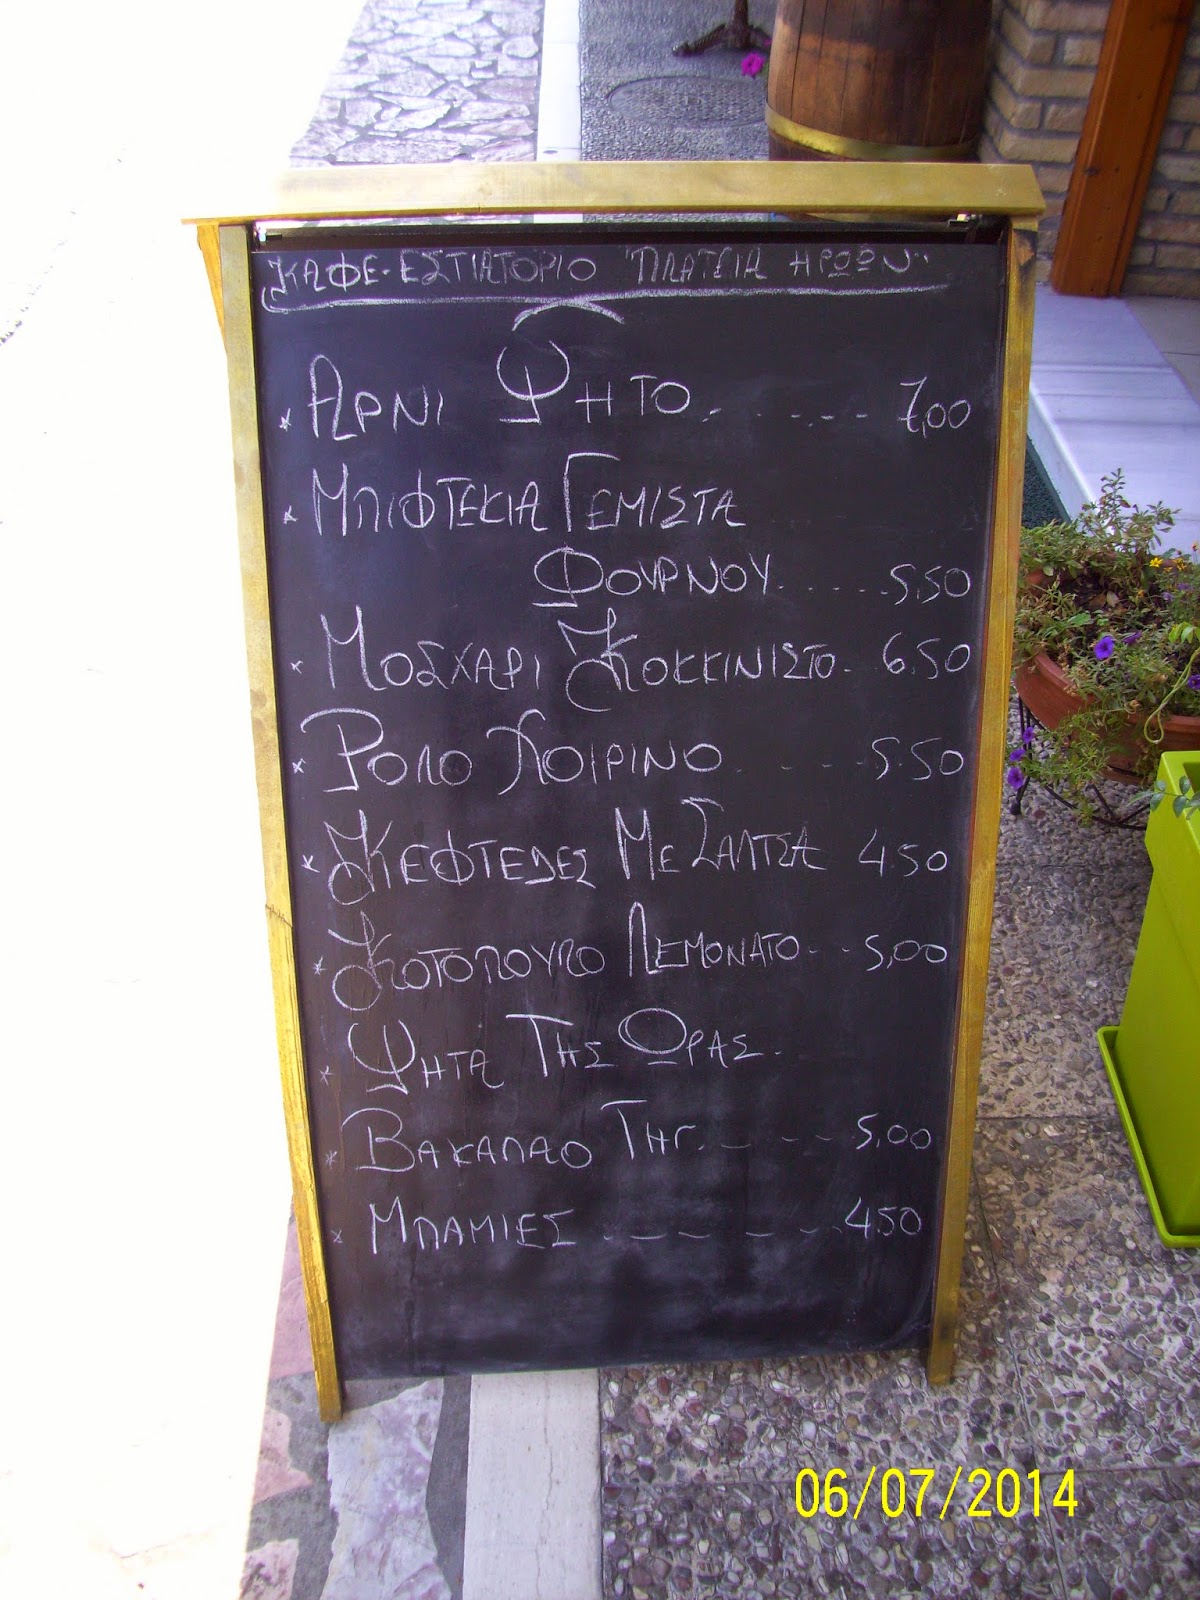 ΚΑΦΕ-ΕΣΤΙΑΤΟΡΙΟ "ΠΛΑΤΕΙΑ ΗΡΩΩΝ"
* ΑΡΝΙ ΨΗΤΟ. - - - - - 7,00
* ΜΠΙΦΤΕΚΙΑ ΓΕΜΙΣΤΑ
ΦΟΥΡΝΟΥ. . . . . . 5,50
* ΜΟΣΧΑΡΙ ΚΟΚΚΙΝΙΣΤΟ. . 6.50
* ΡΟΛΟ ΧΟΙΡΙΝΟ . - - - - 5.50
* ΚΕΦΤΕΔΕΣ ΜΕ ΣΑΛΤΣΑ 4.50
* ΚΟΤΟΠΟΥΛΟ ΛΕΜΟΝΑΤΟ - - 5,00
* ΨΗΤΑ ΤΗΣ ΩΡΑΣ.
* ΒΑΚΑΛΑΟ ΤΗΓ. - - - - 5,00
* ΜΠΑΜΙΕΣ - - - - - - 4.50
06/07/2014